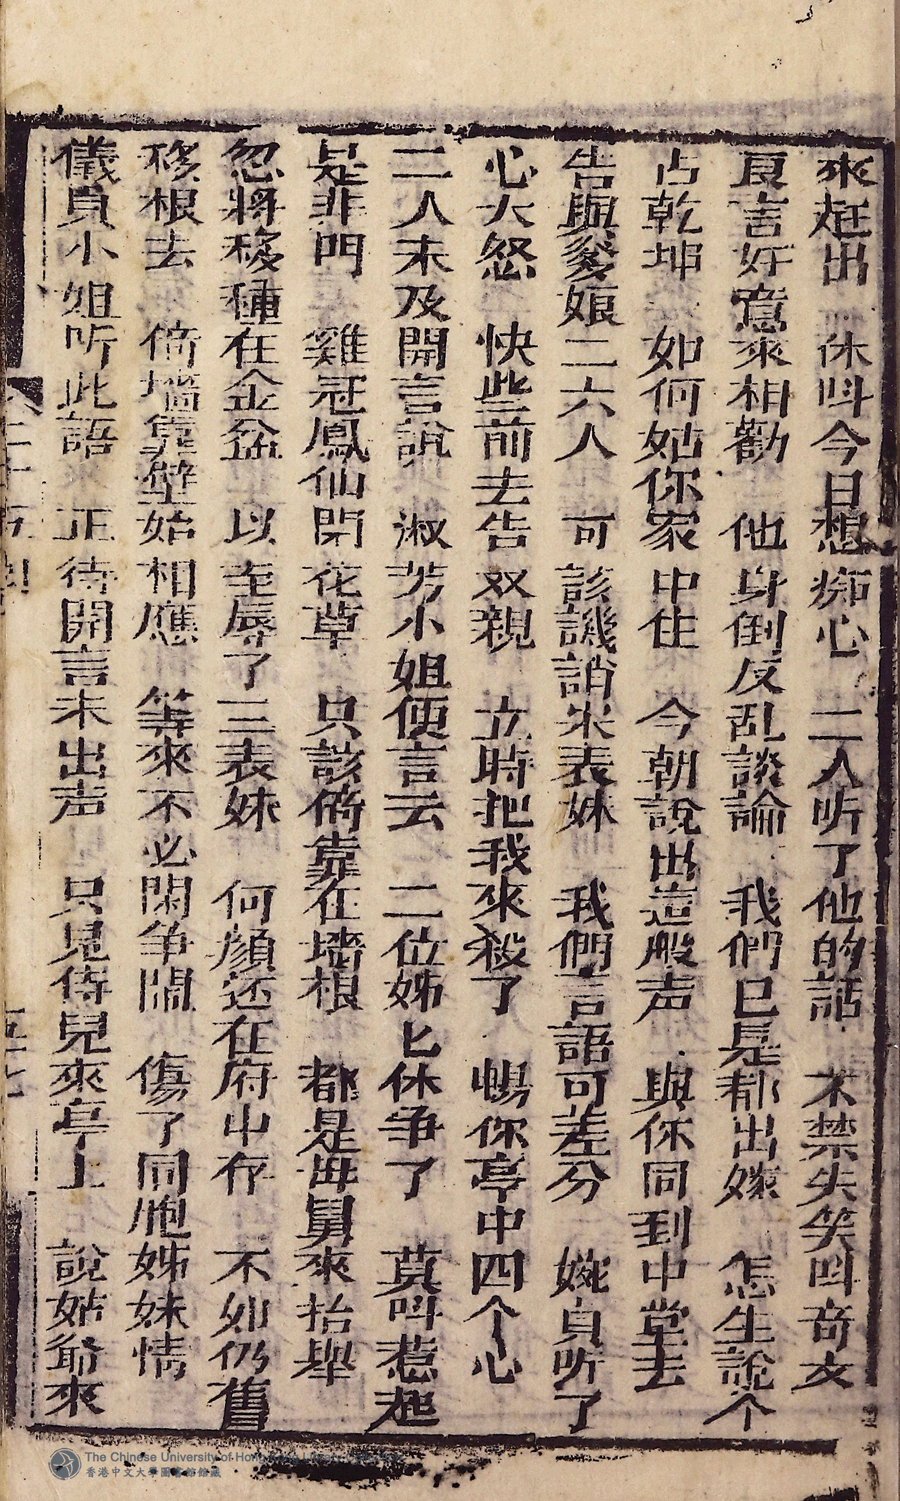 來赶出　休叫今日想痴心　二人听了他的話　不禁失笑叫奇文
良言好意來相勸　他身倒反乱談論　我們已是都出嫁　怎生說个
占乾坤　如何如你家中住　今朝說出這般声　與你同到中堂去
告與爹娘二六人　可該譏誚米表妹　我們言語可差分　婉貞听了
心大怒　快些前去告双親　立時把我來殺了　暢你亭中四个心
二人未及開言說　淑芳小姐便言云　二位姊匕休争了　莫叫惹起
是非門　雞冠鳳仙閑花草　只該倚靠在墻根　都是母舅來抬舉
忽將移種在金盆　以至辱了三表妹　何顔还在府中存　不如仍舊
移根去　倚墻靠壁始相應　等來不必閑争鬧　傷了同胞姊妹情
儀貞小姐听此語　正待開言未出声　只見侍兒來亭上　說姑爺來
二十五
The Chinese University of Hong Kong
香港中文大學圖書館館藏